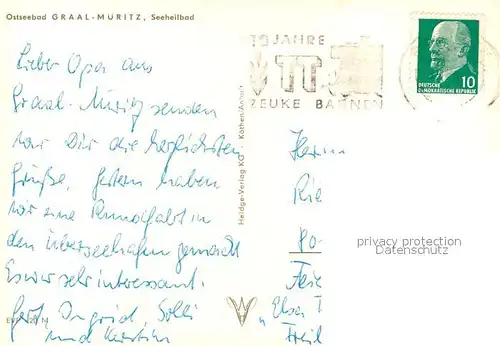 Ostseebad GRAAL-MÜRITZ, Seeheilbad
Lieber Opa aus
Graal-Müritz senden
wir Dir die herzlichsten
Grüße. Gestern haben
wir eine Rundfahrt in
den Überseehafen gemacht
Es war sehr interessant.
Gert, Ingrid,
und Kerstin
Heldge-Verlag KG · Köthen/Anhalt
JAHRE
ZEUKE BAHNEN
10
DEUTSCHE
DEMOKRATISCHE REPUBLIK
Herrn
Rie
Po
privacy protection
Datenschutz
Feie
"Elsa